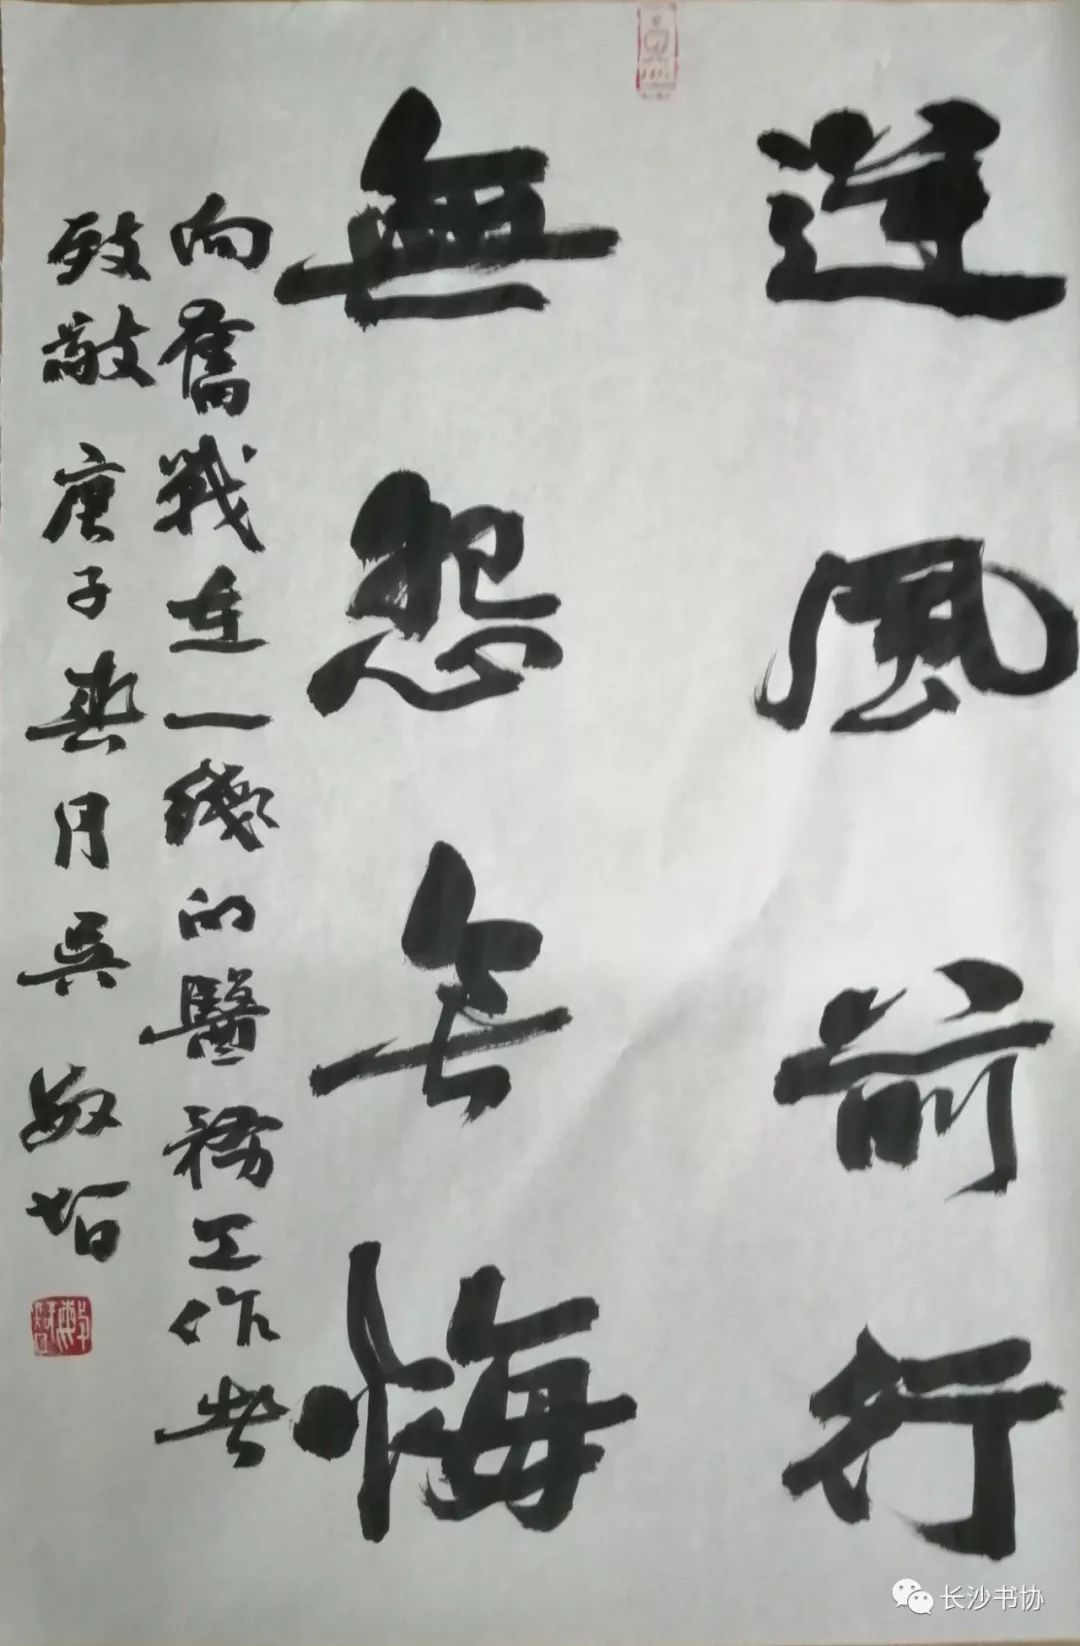 逆風前行
無怨無悔
向奮戰在一綫的醫務工作者
致敬 庚子春月吳
长沙书协